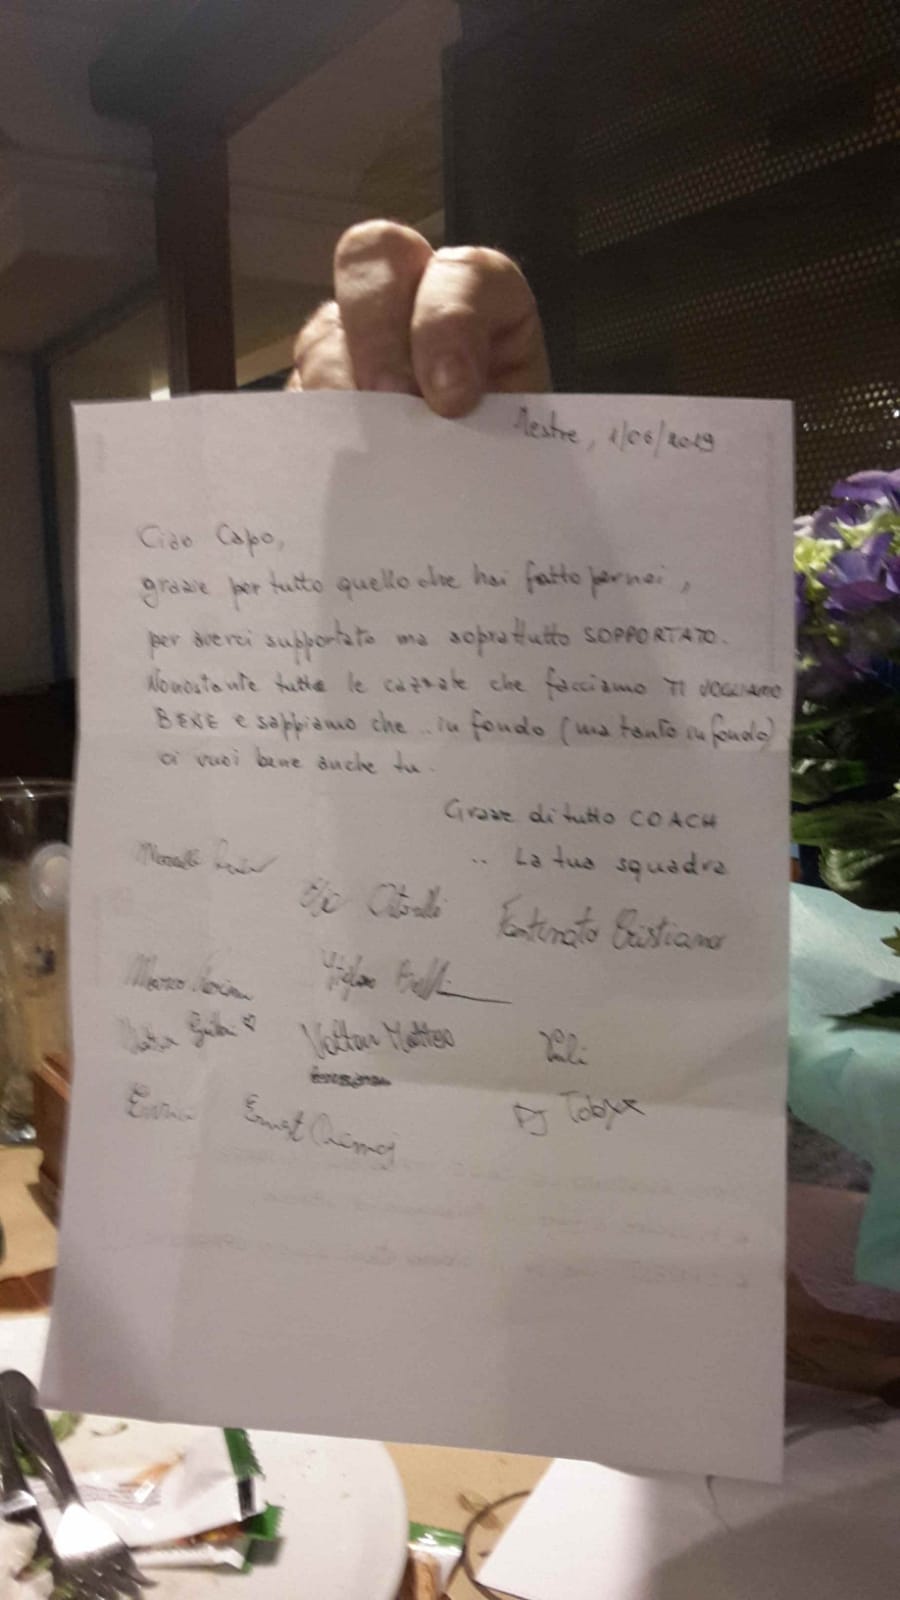 Mestre, 1/06/2019
Ciao Capo,
grazie per tutto quello che hai fatto per noi,
per averci supportato ma soprattutto SOPPORTATO.
Nonostante tutte le cazzate che facciamo TI VOGLIAMO
BENE e sappiamo che .. in fondo (ma tanto in fondo)
ci vuoi bene anche tu.
Grazie di tutto COACH
.. La tua squadra
Fortunato Cristiano
Marco
Stefano
Voltan Matteo
Ernest
DJ